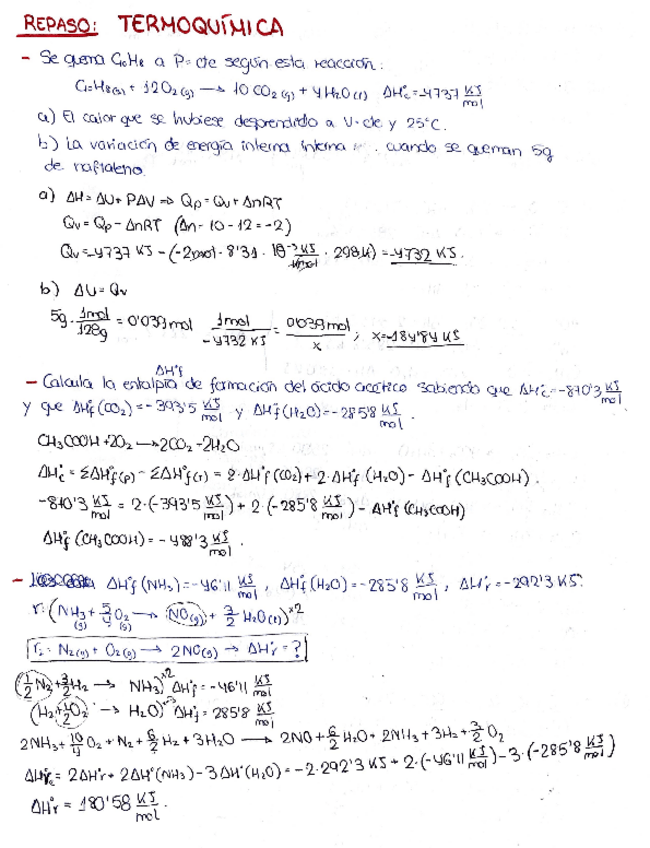 REPASO: TERMOQUÍMICA
- Se quema C10H8 a P=cte según esta reacción:
C10H8(s) + 12O2(g) → 10 CO2(g) + 4H2O(l) ΔH°c=-4737 KJ/mol
a) El calor que se hubiese desprendido a V=cte y 25°C.
b) La variación de energía interna interna cuando se queman 5g
de naftaleno.
a) ΔH=ΔU+PΔV ⇒ Qp=Qv+ΔnRT
Qv=Qp-ΔnRT (Δn=10-12=-2)
Qv=-4737 KJ-(-2mol·8'31·10⁻³ KJ/Kmol·298K)=-4732 KJ.
b) ΔU=Qv
5g·1mol/128g=0'039mol 1mol/-4732 KJ=0'039mol/x; x=-184'84 KJ
ΔH°f
- Calcula la entalpía de formación del ácido acético sabiendo que ΔH°c=-870'3 KJ/mol
y que ΔH°f(CO2)=-393'5 KJ/mol y ΔH°f(H2O)=-285'8 KJ/mol.
CH3COOH+2O2→2CO2+2H2O
ΔH°c=ΣΔH°f(p)-ΣΔH°f(r)=2·ΔH°f(CO2)+2·ΔH°f(H2O)-ΔH°f(CH3COOH).
-870'3 KJ/mol=2·(-393'5 KJ/mol)+2·(-285'8 KJ/mol)-ΔH°f(CH3COOH)
ΔH°f(CH3COOH)=-488'3 KJ/mol.
- ΔH°f(NH3)=-46'11 KJ/mol, ΔH°f(H2O)=-285'8 KJ/mol, ΔH°r=-292'3 KJ.
r:(NH3(g)+5/4 O2(g)→NO(g)+3/2 H2O(l))×2
r2: N2(g)+O2(g)→2NO(g)→ΔH°r=?
(1/2 N2+3/2 H2→NH3)×2 ΔH°f=-46'11 KJ/mol
(H2+1/2 O2→H2O)×3 ΔH°f=285'8 KJ/mol
2NH3+10/4 O2+N2+6/2 H2+3H2O→2NO+6/2 H2O+2NH3+3H2+3/2 O2
ΔH°r=2ΔH°r+2ΔH°(NH3)-3ΔH°(H2O)=-2·292'3 KJ+2·(-46'11 KJ/mol)-3·(-285'8 KJ/mol)
ΔH°r=180'58 KJ/mol.